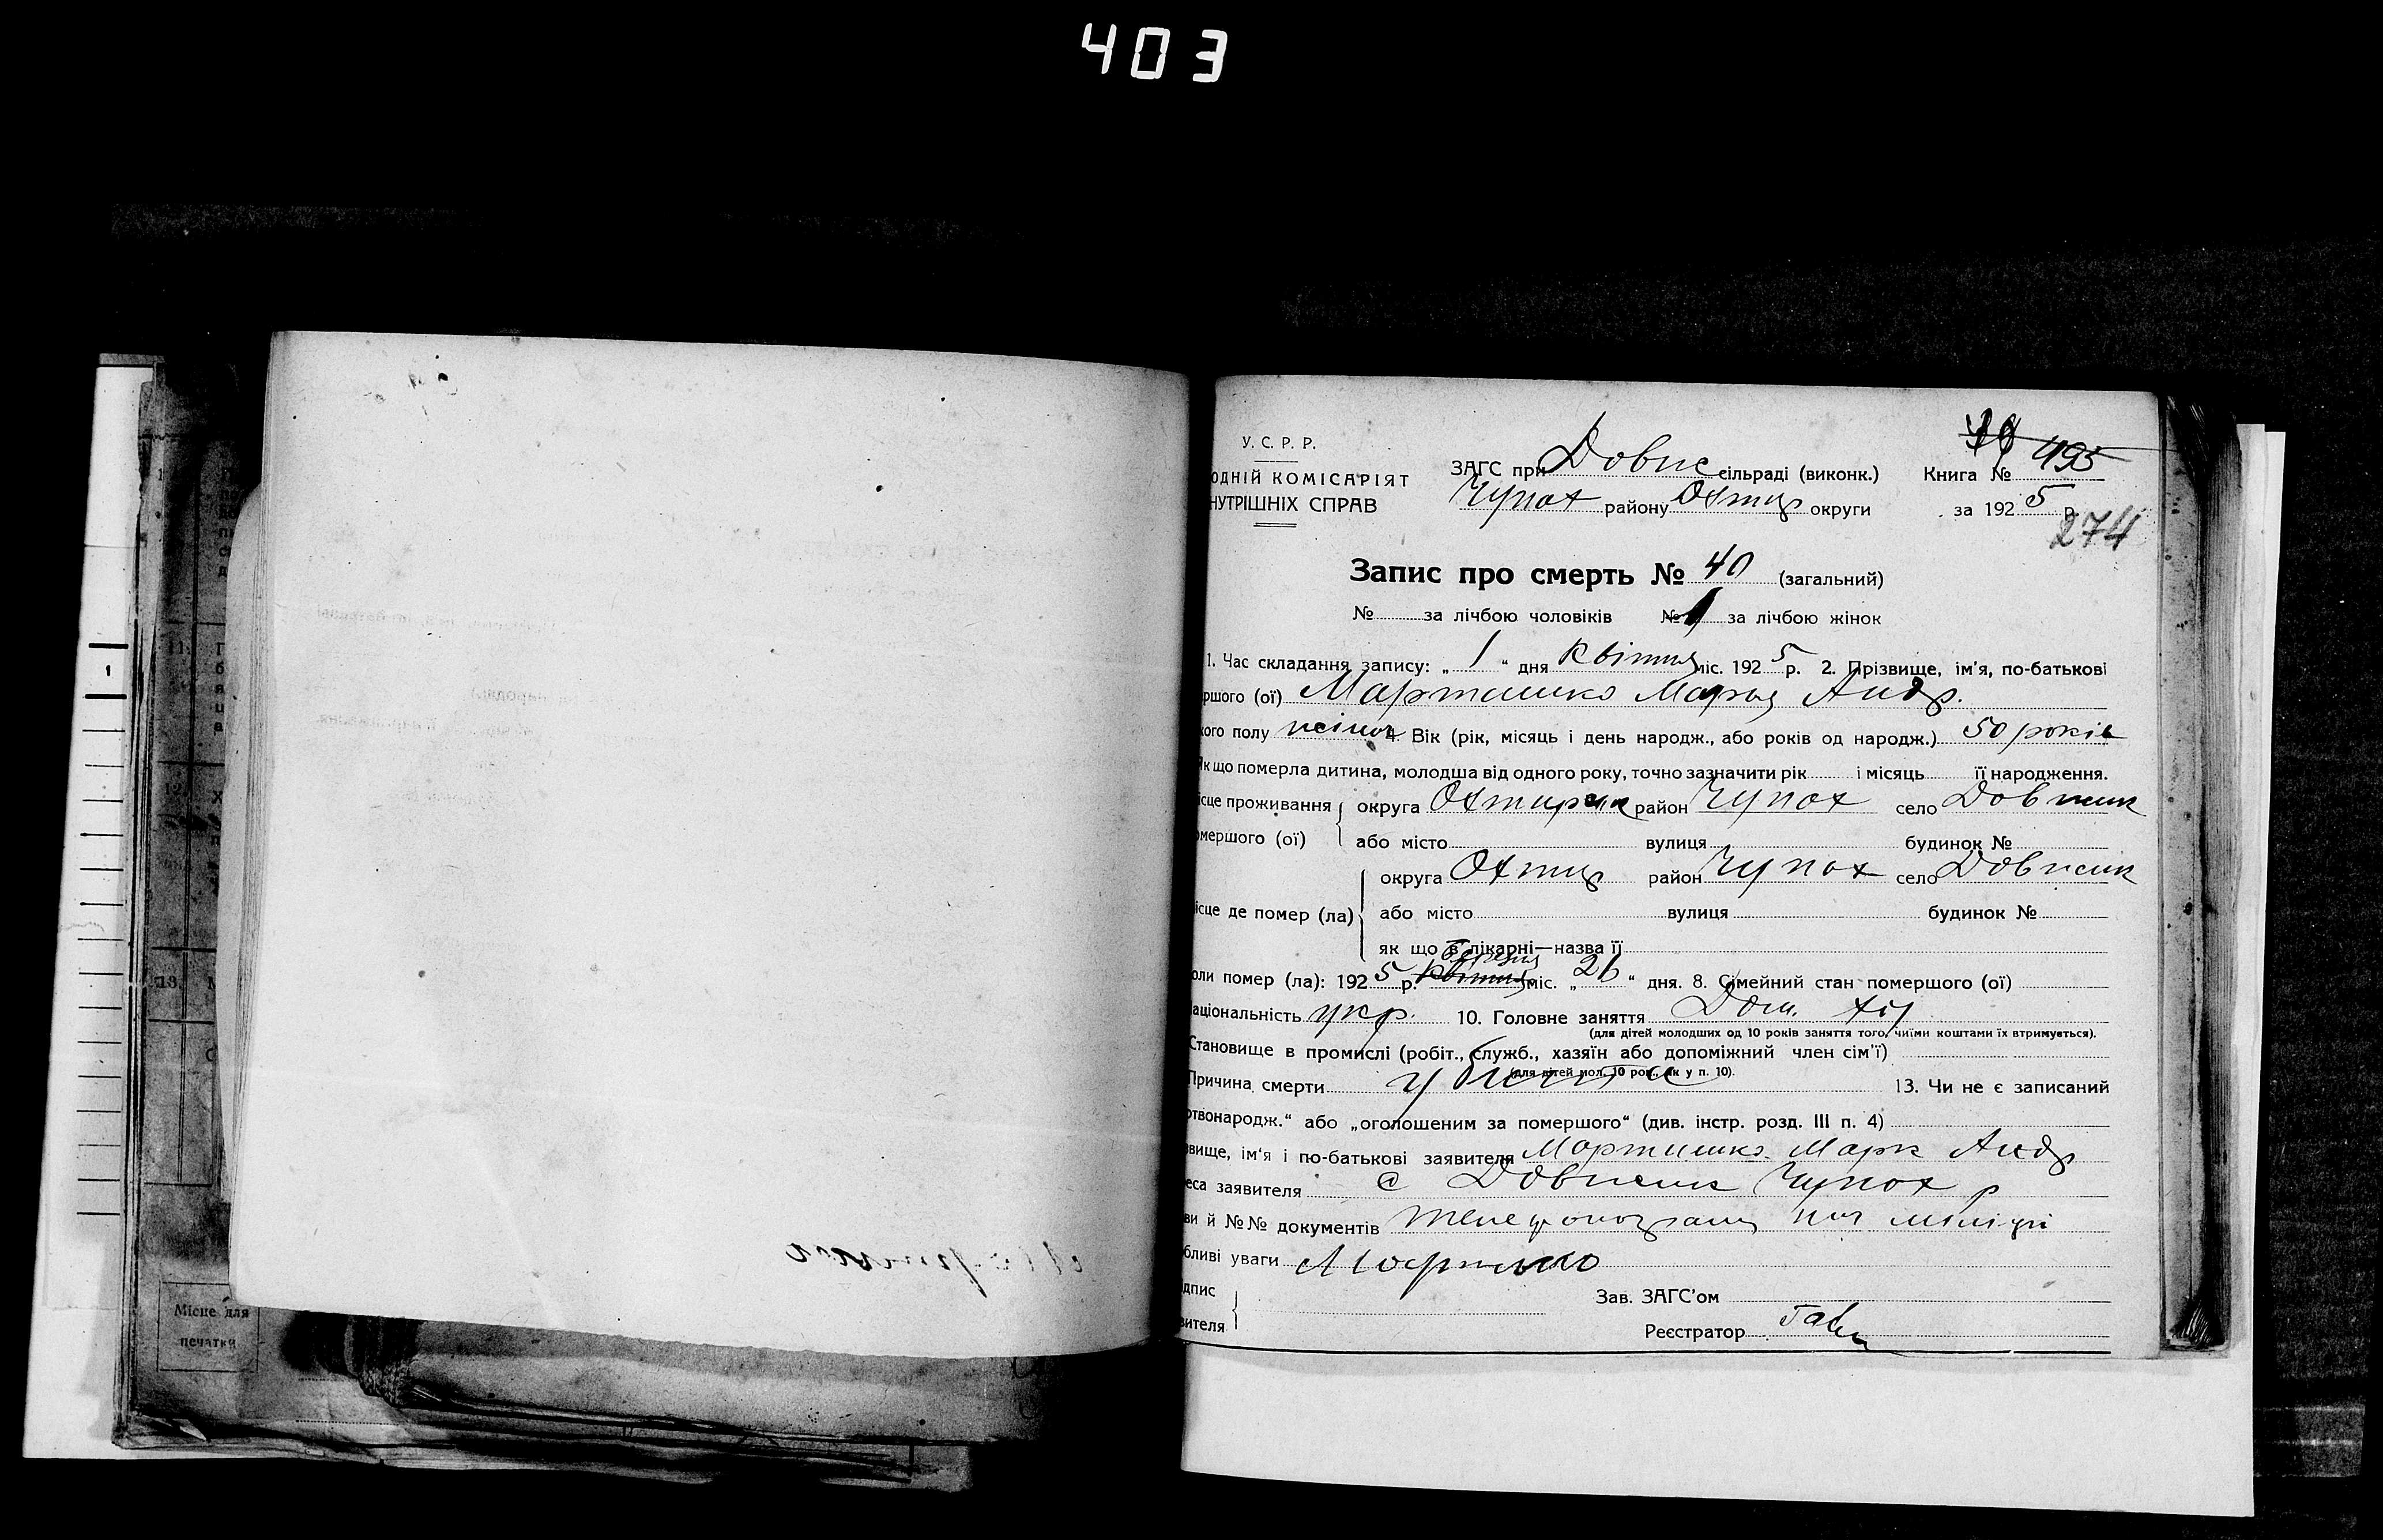 403
У. С. Р. Р.
ОДНІЙ КОМІСАРІЯТ
НУТРІШНІХ СПРАВ
ЗАГС при Довж сільраді (виконк.)
Чупах району Охтир округи
Книга № 495
за 1925 р.
274
Запис про смерть № 40 (загальний)
№ за лічбою чоловіків № 1 за лічбою жінок
1. Час складання запису: „ 1 “ дня Квітня міс. 1925 р. 2. Прізвище, ім'я, по-батькові
ршого (ої) Марташко Андр.
кого полу жіноч 4. Вік (рік, місяць і день народж., або років од народж.) 50 років
Як що померла дитина, молодша від одного року, точно зазначити рік і місяць її народження.
ісце проживання округа Охтирськ район Чупах село Довжик
омершого (ої) або місто вулиця будинок №
округа Охтир район Чупах село Довжик
ісце де помер (ла) або місто вулиця будинок №
як що в лікарні—назва її
Березня
оли помер (ла): 1925 р. Квітня міс. „ 26 “ дня. 8. Сімейний стан помершого (ої)
аціональність укр. 10. Головне заняття Дом.
(для дітей молодших од 10 років заняття того, чиїми коштами їх втримується).
Становище в промислі (робіт., служб., хазяїн або допоміжний член сім'ї)
(для дітей мол. 10 рок., як у п. 10).
Причина смерти убита 13. Чи не є записаний
ртвонародж.“ або „оголошеним за помершого“ (див. інстр. розд. III п. 4)
звище, ім'я і по-батькові заявителя Марк Андр
еса заявителя с Довжик Чупах р
ви й №№ документів телефонограма міліції
бливі уваги
дпис
вителя
Зав. ЗАГС'ом
Реєстратор
Місце для
печатки